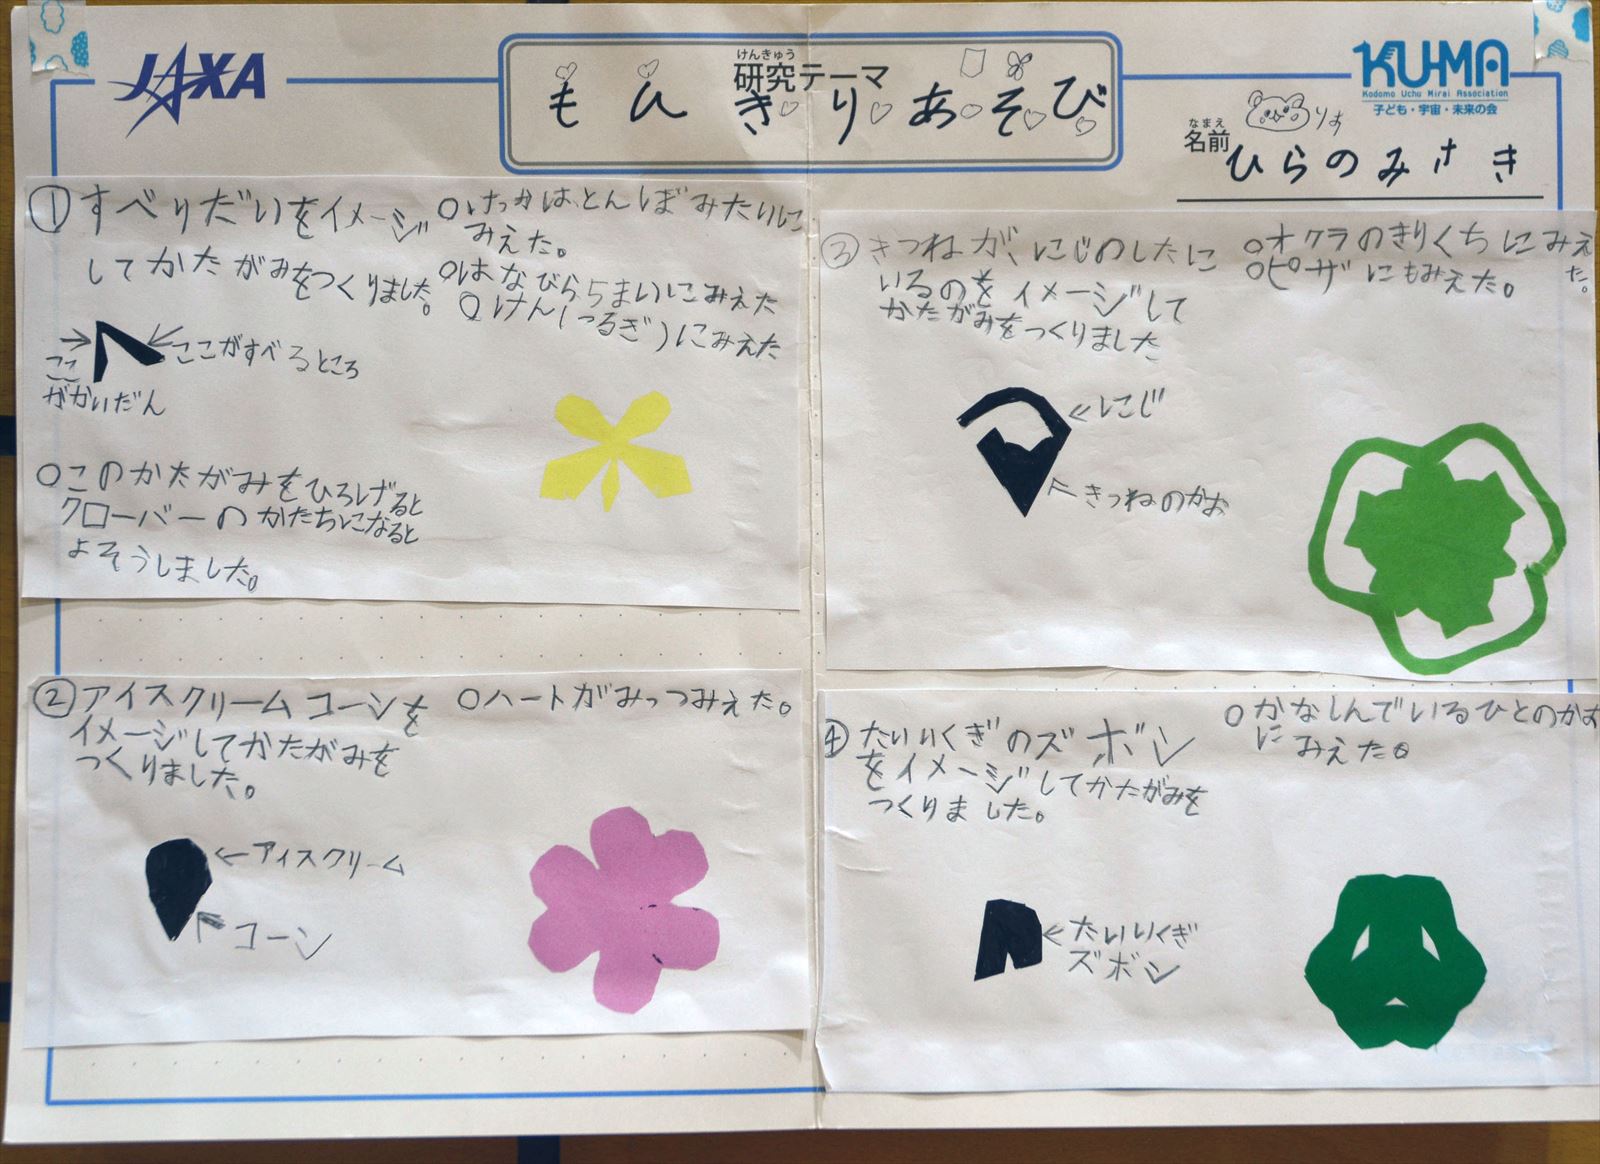 JAXA
けんきゅう
研究テーマ
もんきりあそび
KU-MA
Kodomo Uchu Mirai Association
子ども・宇宙・未来の会
なまえ
名前
りお
ひらのみさき
① すべりだいをイメージ
してかたがみをつくりました。
ここ
がかいだん
ここがすべるところ
○けっかは、とんぼみたいに
みえた。
○はなびら5まいにみえた
○けん(つるぎ)にみえた
○このかたがみをひろげると
クローバーのかたちになると
よそうしました。
② アイスクリームコーンを
イメージしてかたがみを
つくりました。
←アイスクリーム
コーン
○ハートがみっつみえた。
③ きつねが、にじのしたに
いるのをイメージして
かたがみをつくりました
←にじ
きつねのかお
○オクラのきりくちにみえ
た。
○ピーザにもみえた。
④ たいいくぎのズボン
をイメージしてかたがみを
つくりました。
←たいいくぎ
ズボン
○かなしんでいるひとのかお
にみえた。